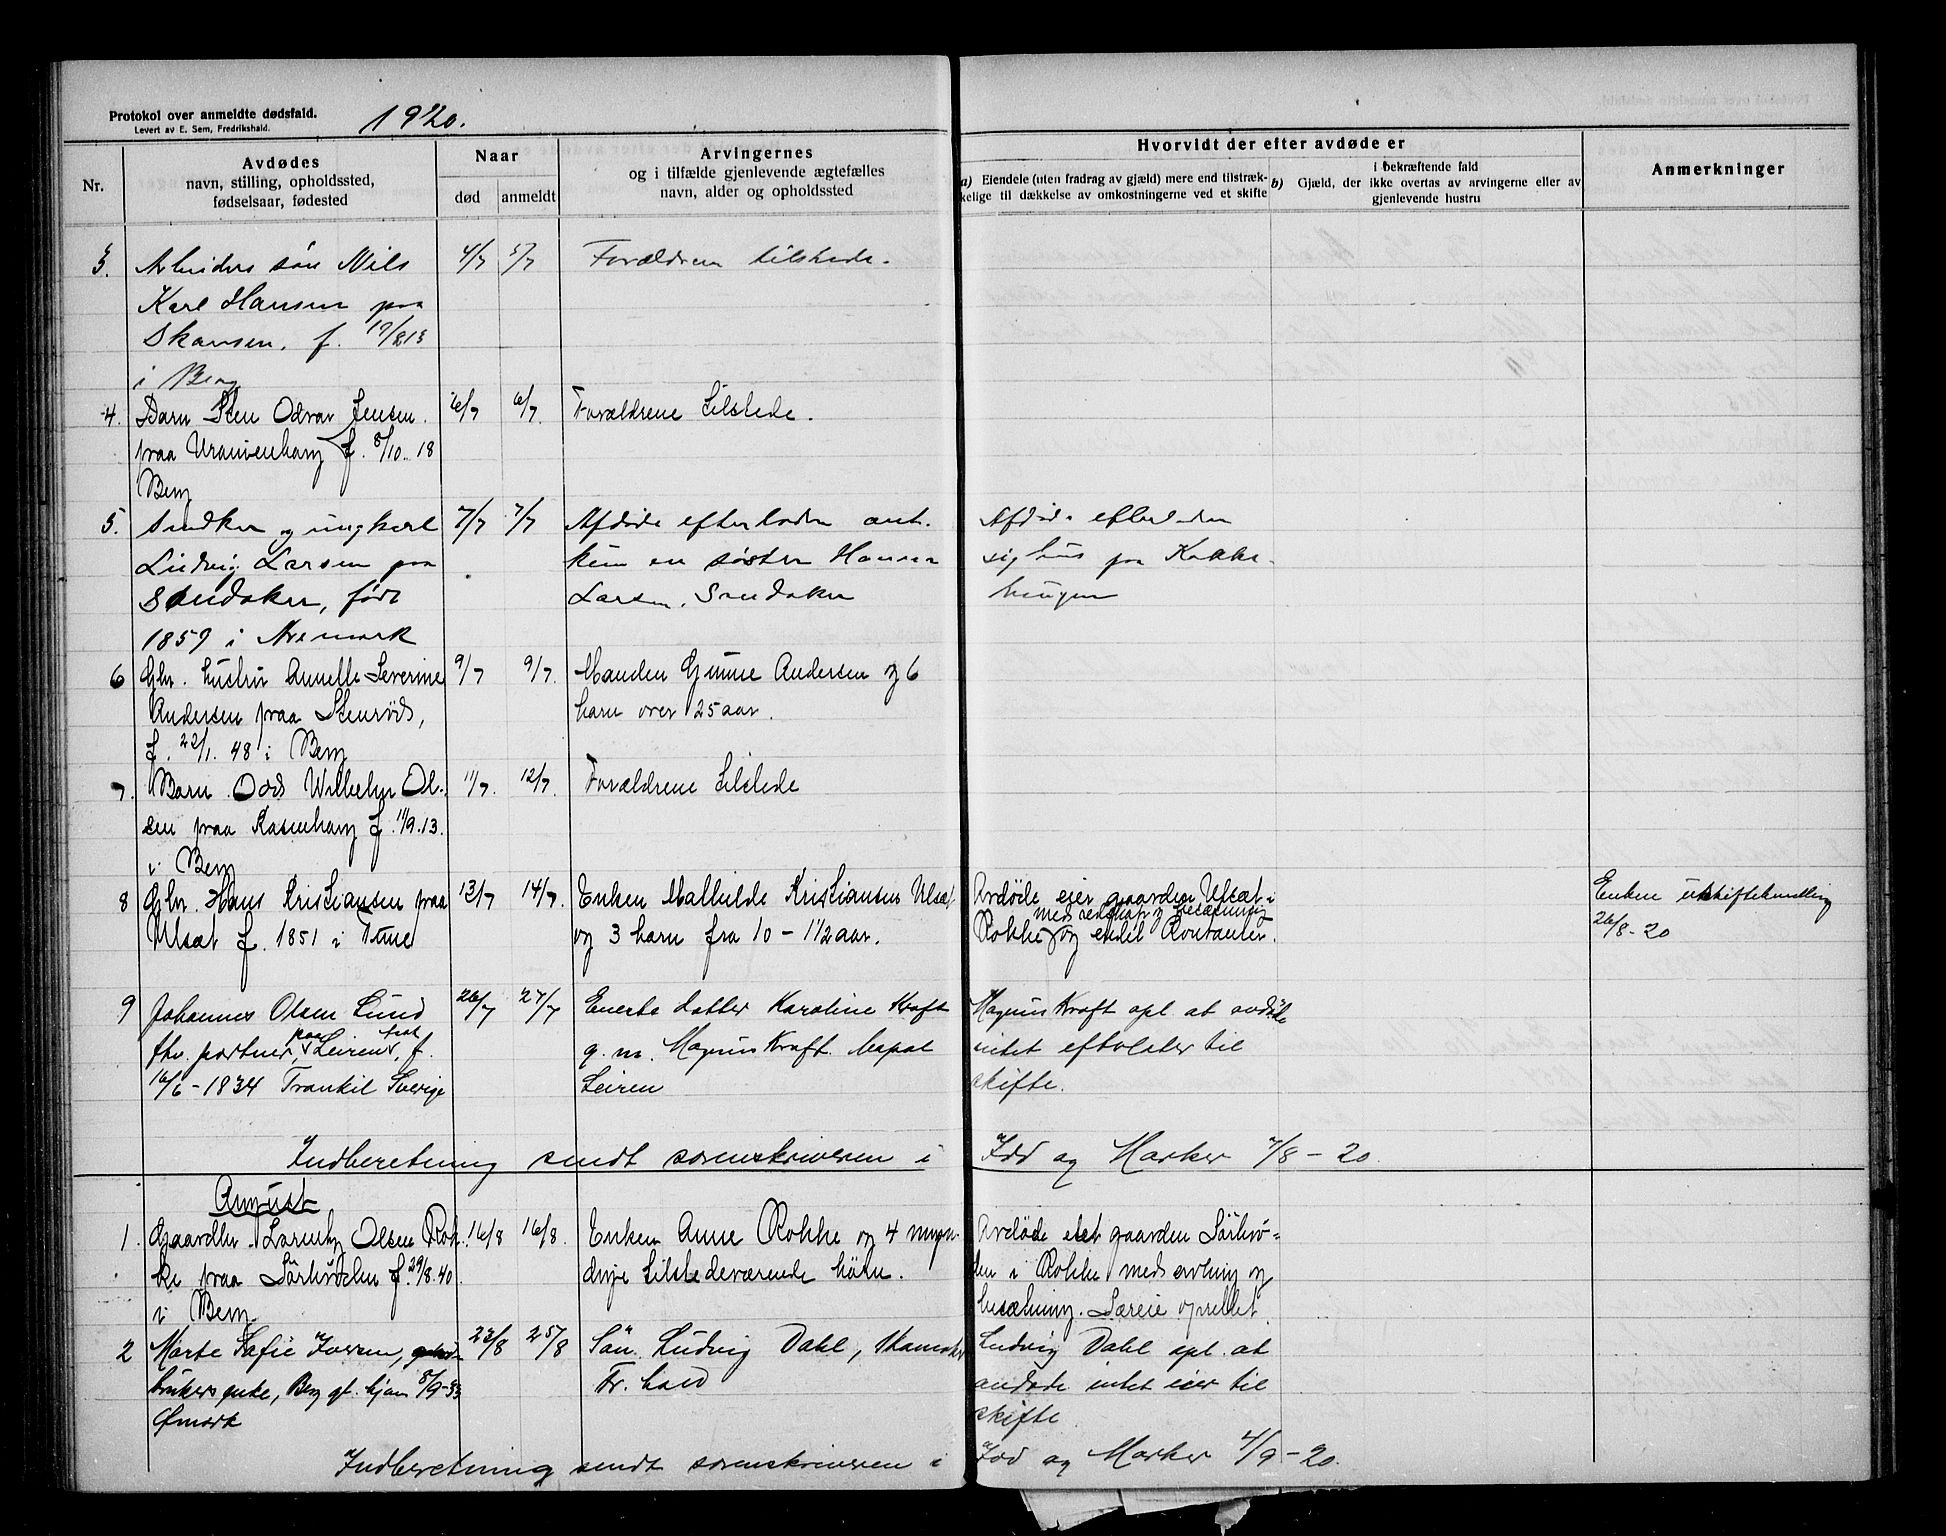 Protokol over anmeldte dødsfald.
Levert av E. Sem, Fredrikshald.
1920.
Nr.
Avdødes
navn, stilling, opholdssted,
fødselsaar, fødested
Naar
død
anmeldt
Arvingernes
og i tilfælde gjenlevende ægtefælles
navn, alder og opholdssted
Hvorvidt der efter avdøde er
a) Eiendele (uten fradrag av gjæld) mere end tilstræk-
kelige til dækkelse av omkostningerne ved et skifte
i bekræftende fald
b) Gjæld, der ikke overtas av arvingerne eller av
gjenlevende hustru
Anmerkninger
3. Arbeiders søn Nils
Karl Hansen paa
Skansen, f. 19/8 13
i Berg
4/7 5/7
Forældrene tilstede.
4. Barn Sten Odvar Jensen
paa Uranienborg f. 8/10. 18
Berg
6/7 6/7.
Forældrene tilstede.
5. Snedker og ungkarl
Ludvig Larsen paa
Sandaker, født
1859 i Aremark
7/7 7/7
Afdøde efterlader ant.
kun en søster Hanna
Larsen, Sandaker
Afdøde efterlader
sig hus paa Kokke-
haugen
6 Gbr. hustru Anette Severine
Andersen paa Stenrød,
f. 22/1. 48 i Berg
9/7 9/7.
Manden Gunne Andersen og 6
barn over 25 aar.
7. Barn Odd Wilhelm Ol-
sen paa Rosenborg f. 11/9. 13.
i Berg
11/7. 12/7.
Forældrene tilstede
8 Gbr. Hans Kristiansen paa
Ulsæt f. 1851 i Tune
13/7 14/7.
Enken Mathilde Kristiansen Ulsæt
og 3 barn fra 10 - 12 aar.
Avdøde eier gaarden Ulsæt i
med redskap og besætning
Rokke og endel Kontanter.
Enken uskiftebevilling
26/8-20
9 Johannes Olsen Lund
fhv. portner, paa Leiren, født f.
16/6 - 1834 Trankil Sverige
26/7 27/7
Eneste datter Karoline Kraft
g. m. Magnus Kraft. bopæl
Leiren
Magnus Kraft opl at avdøde
intet efterlater til
skifte.
Indberetning sendt sorenskriveren i Idd og Marker 7/8 - 20.
August
1. Gaardbr. Lorentz Olsen Rok-
ke paa Sörbröden f. 29/8. 40
i Berg.
16/8 16/8.
Enken Anne Rokke og 4 myn-
dige tilstedeværende børn.
Avdøde eiet gaarden Sörbrö-
den i Rokke med avling og
besætning. Særeie oprettet.
2 Marte Sofie Iversen,
brukers enke, Berg gt. hjem 8/9-33
Ømark
23/8 25/8
Sön Ludvig Dahl,
Fr.hald
Ludvig Dahl opl. at
avdøde intet eier til
skifte.
Indberetning sendt sorenskriveren i Idd og Marker 4/9 - 20.